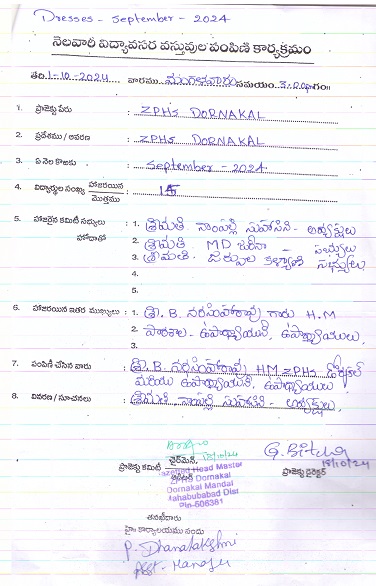 Dresses - September - 2024
నెలవారీ విద్యావసర వస్తువుల పంపిణి కార్యక్రమం
తేది.1-10-2024 వారము మంగళవారం సమయం.3:20
1. ప్రాజెక్టు పేరు : ZPHS DORNAKAL
2. ప్రదేశము / ఆవరణ : ZPHS DORNAKAL
3. ఏ నెల కొఱకు : September - 2024
4. విద్యార్థుల సంఖ్య హాజరయిన / మొత్తము :
5. హాజరైన కమిటీ సభ్యులు : 1. శ్రీమతి నాంపల్లి సుహాసిని - అధ్యక్షులు
హోదాతో 2. శ్రీమతి MD - సభ్యులు
3. శ్రీమతి. జెర్పుల కళ్యాణి సభ్యులు
4.
5.
6. హాజరయిన ఇతర ముఖ్యులు : 1. శ్రీ. B. నరసింహారావు గారు H.M
2. పాఠశాల - ఉపాధ్యాయుని, ఉపాధ్యాయులు.
3.
7. పంపిణి చేసిన వారు : శ్రీ. B. నరసింహారావు HM ZPHS డోర్నకల్
మరియు ఉపాధ్యాయుని, ఉపాధ్యాయులు
8. వివరణ / సూచనలు : శ్రీమతి నాంపల్లి సుహాసిని - అధ్యక్షులు.
15/10/24
చైర్‌మెన్,
ప్రాజెక్టు కమిటీ
Gazetted Head Master
Dornakal
Dornakal Mandal
Mahabubabad Dist
Pin-506381
15/10/24
ప్రాజెక్టు డైరెక్టర్
తనఖీదారు
హైం కార్యాలయము నందు
P. Dhanalakshmi
Asst. Manager